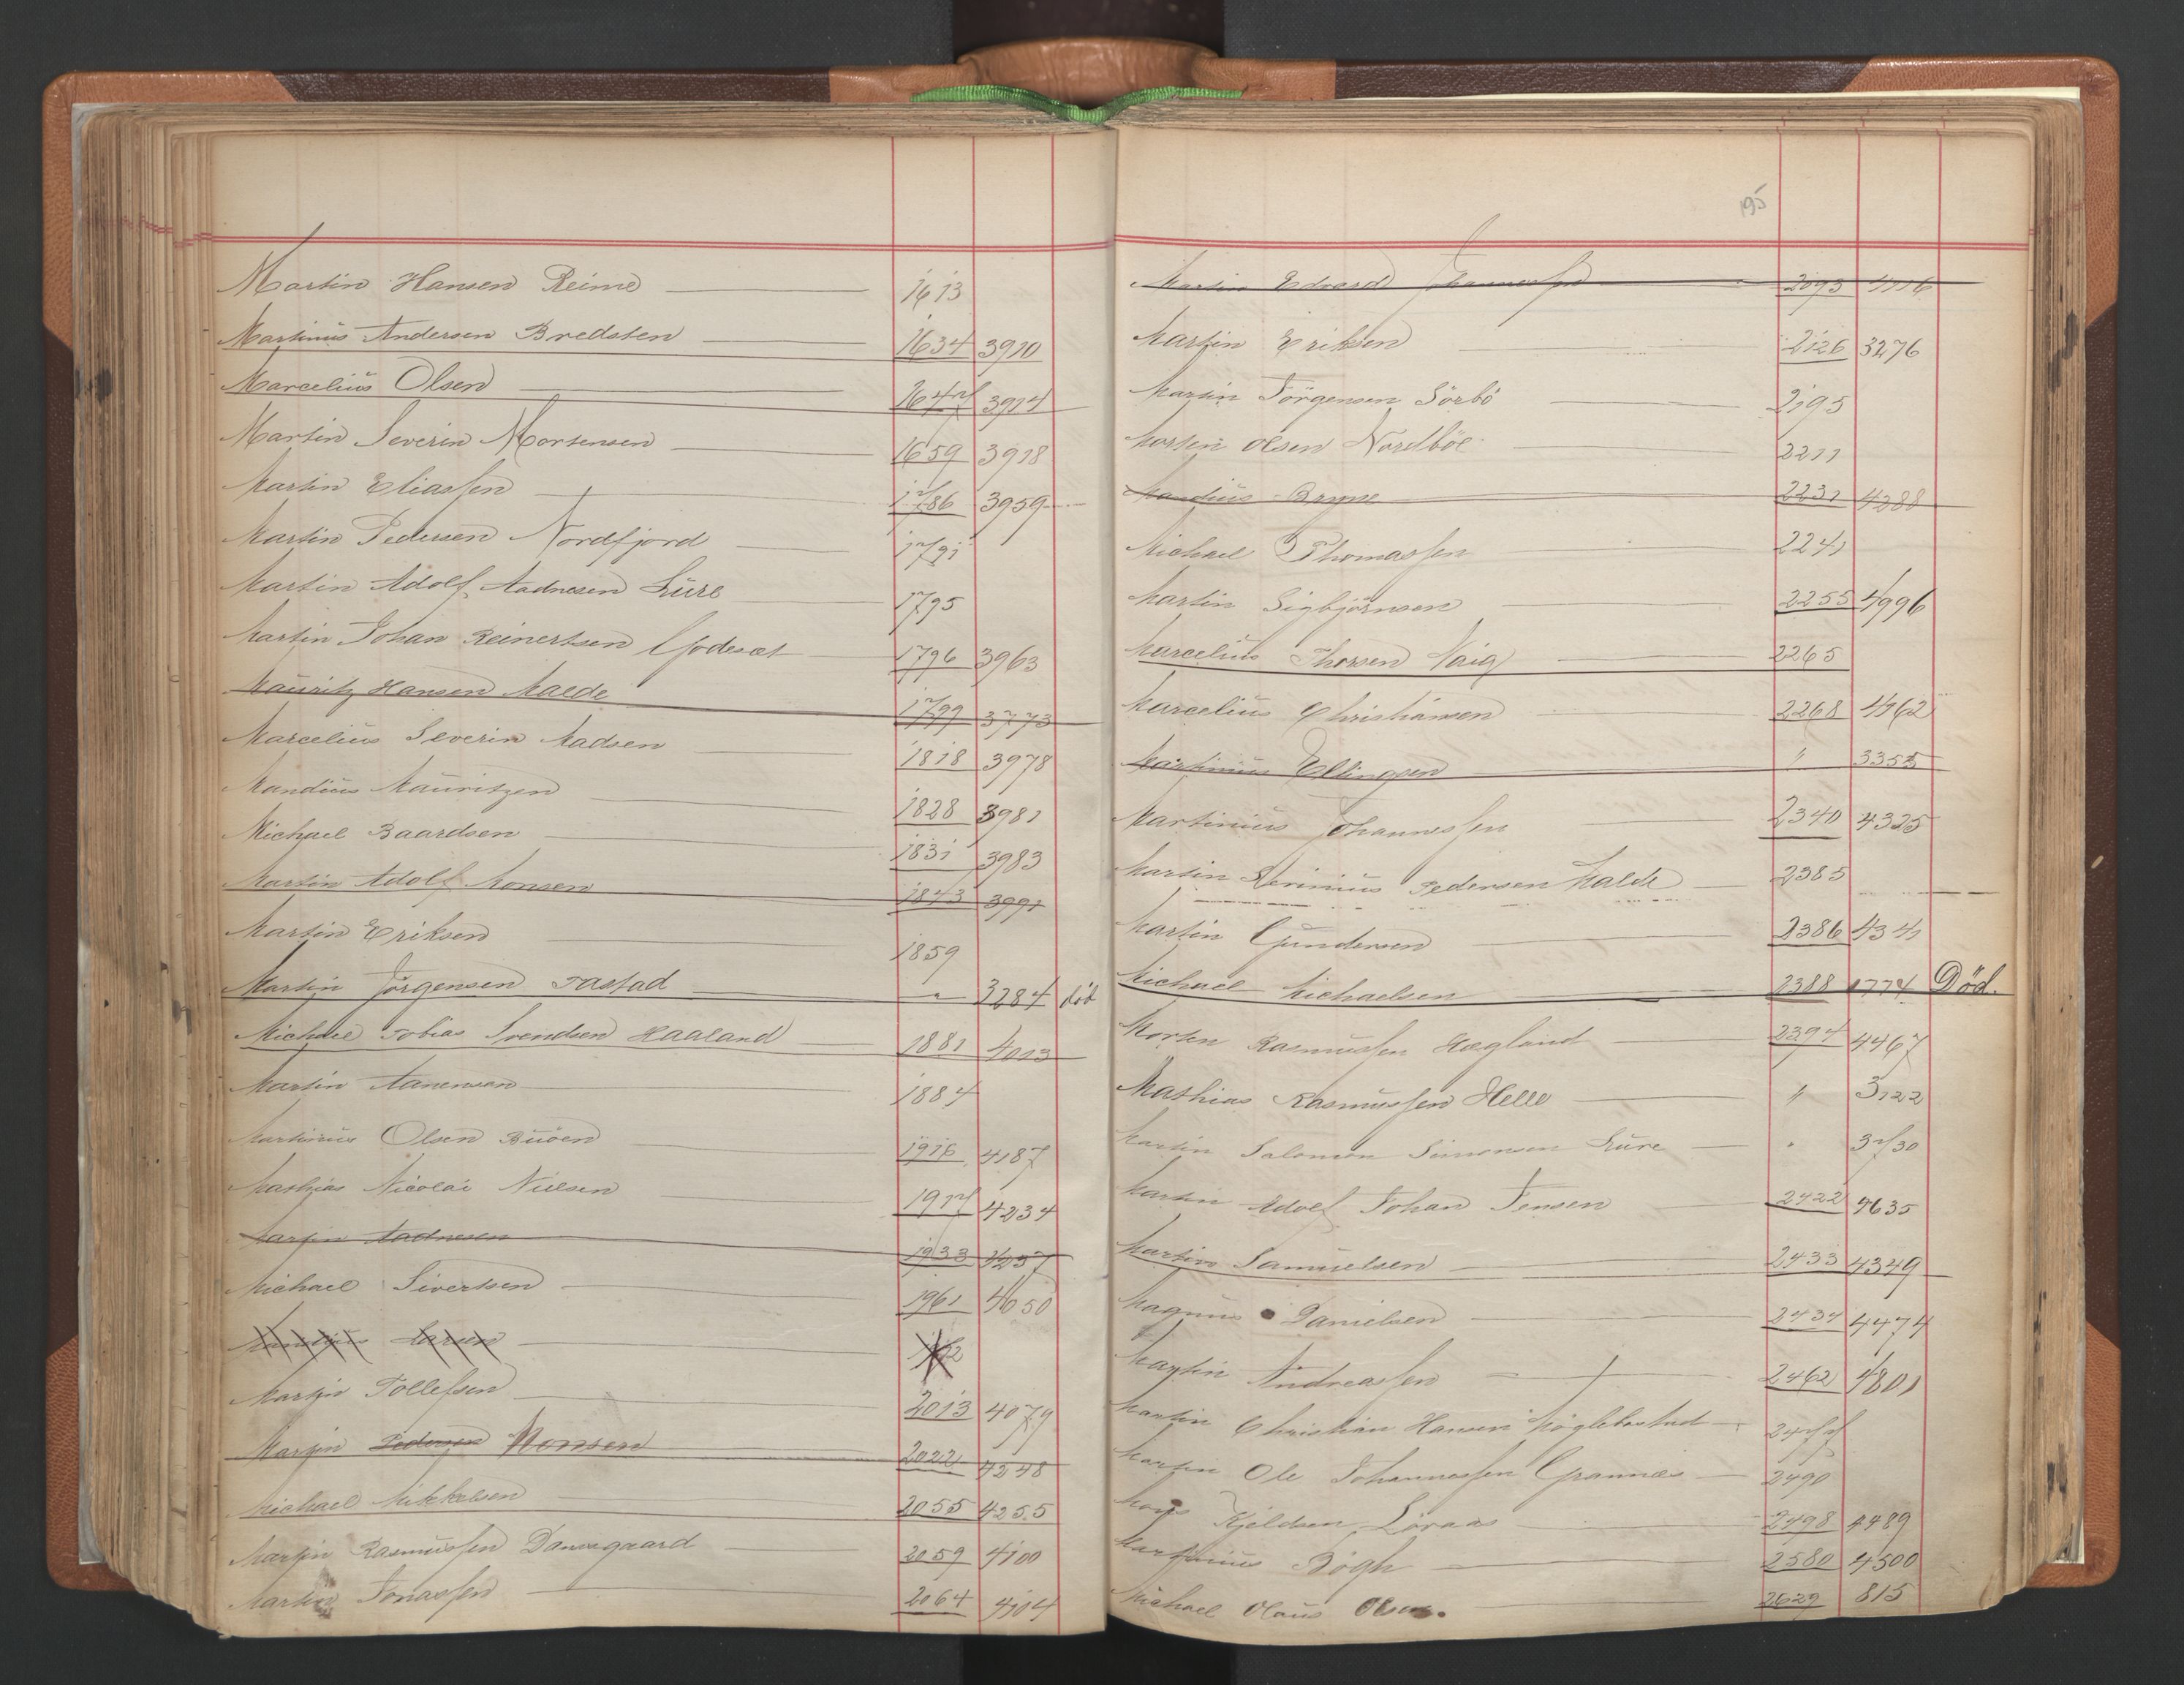 Martin Hansen Reime 1613
Martinus Andersen Bredsten 1634 3910
Marcelius Olsen 1647 3914
Martin Severin Mortensen 1659 3918
Martin Eliassen 1786 3959
Martin Pedersen Nordfjord 1791
Martin Adolf Aadnesen Lure 1795
Martin Johan Reinertsen Godeset 1796 3963
Mauritz Hansen Malde 1799 3773
Marcelius Severin Madsen 1818 3978
Mandius Mauritzen 1828 3981
Michael Baardsen 1831 3983
Martin Adolf Monsen 1843 3991
Martin Eriksen 1859
Martin Jörgensen Tastad " 3284 död
Michael Tobias Svendsen Haaland 1881 4013
Martin Aanensen 1884
Martinius Olsen Buöen 1916 4187
Mathias Nicolai Nielsen 1917 4234
Martin Aadnesen 1933 4237
Michael Sivertsen 1961 4050
Larsen
Martin Tollefsen 2013 4079
Martin Pedersen Monsen 2022 4248
Michael Mikkelsen 2055 4255
Martin Rasmussen Damsgaard 2059 4100
Martin Jonassen 2064 4104
195
Martin Edvard Johannessen 2093 4116
Martin Eriksen 2126 3276
Martin Jörgensen Sörbö 2195
Morten Olsen Nordböe 2211
Mandius Bryne 2231 4288
Michael Thomassen 2241
Martin Sigbjörnsen 2255 4996
Marcelius Thorsen Vaig 2265
Marcelius Christiansen 2268 4462
Martinius Ellingsen " 3355
Martinius Johannessen 2340 4325
Martin Severinius Pedersen Malde 2385
Martin Gundersen 2386 4341
Michael Michaelsen 2388 1774 Död.
Morten Rasmussen Hægland 2394 4467
Mathias Rasmussen Helle " 3122
Martin Salomon Simonsen Lure " 3730
Martin Adolf Johan Jensen 2422 4635
Martin Samuelsen 2433 4349
Magnus Danielsen 2434 4474
Martin Andreassen 2462 4801
Martin Christian Hansen Möglebostad 2477
Martin Ole Johannessen Grannes 2490
Mons Kjeldsen Löraas 2498 4489
Martinius Bögh 2580 4500
Michael Olaus Olsen. 2629 815